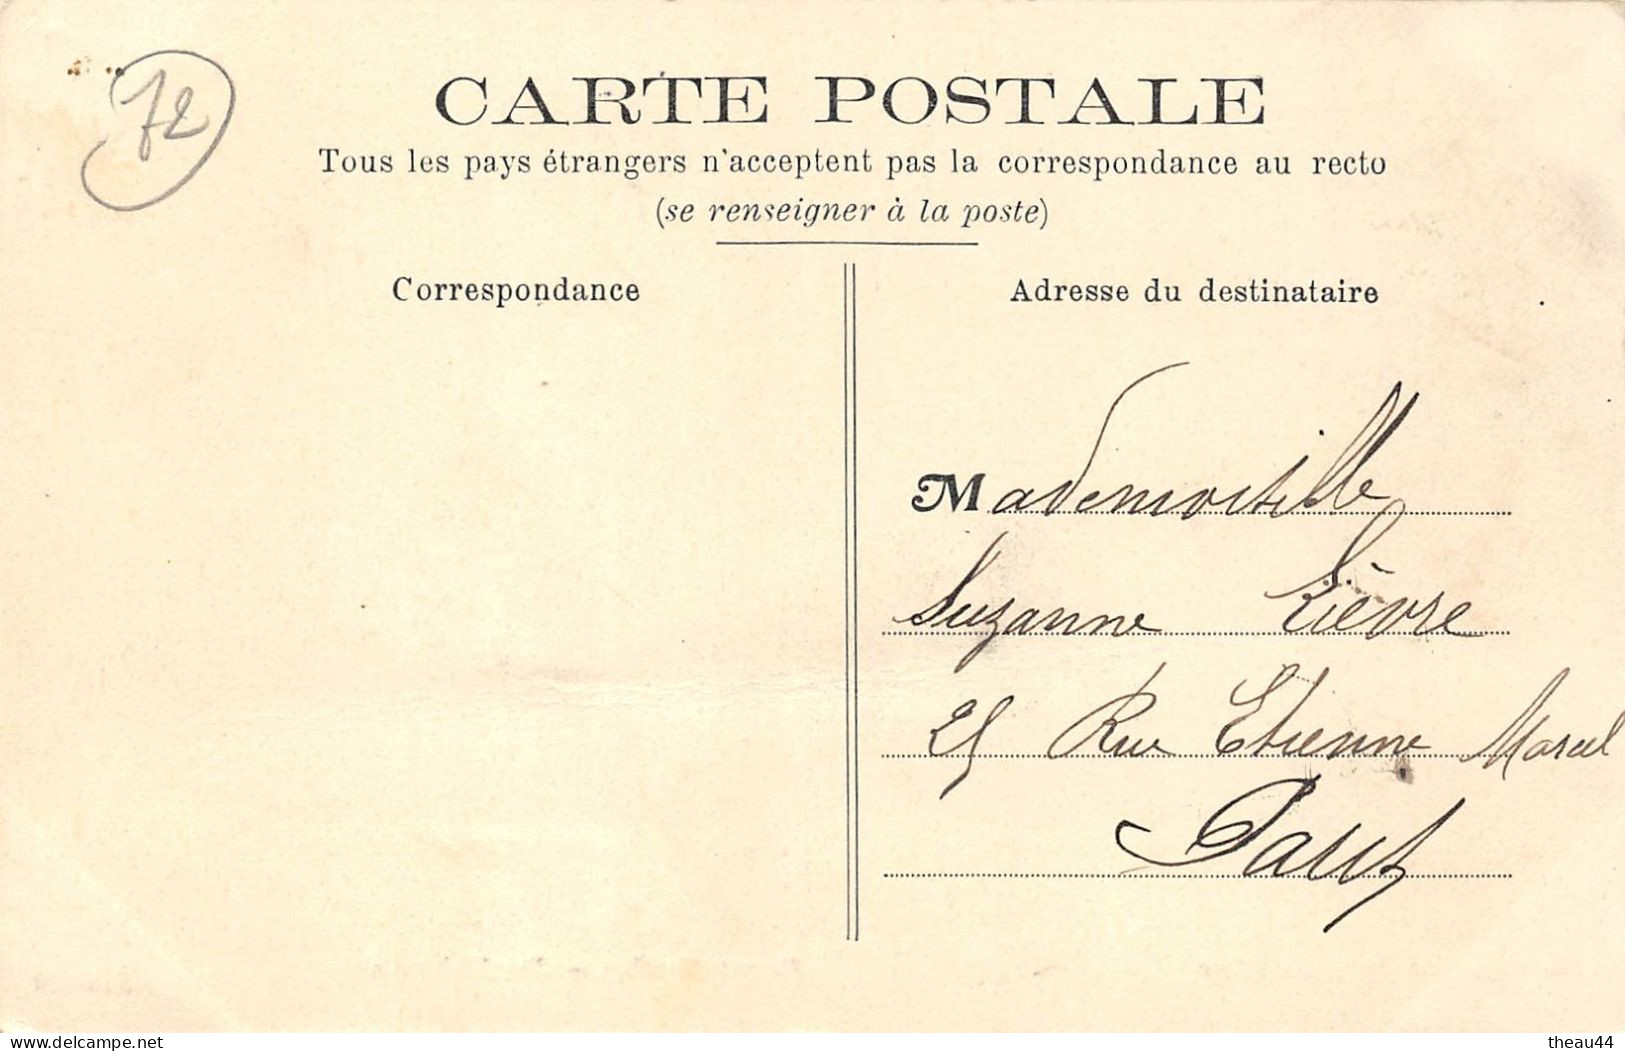 72
CARTE POSTALE
Tous les pays étrangers n'acceptent pas la correspondance au recto
(se renseigner à la poste)
Correspondance
Adresse du destinataire
Mademoiselle
Suzanne Lièvre
25 Rue Etienne Marcel
Paris
delcampe.net
theau44